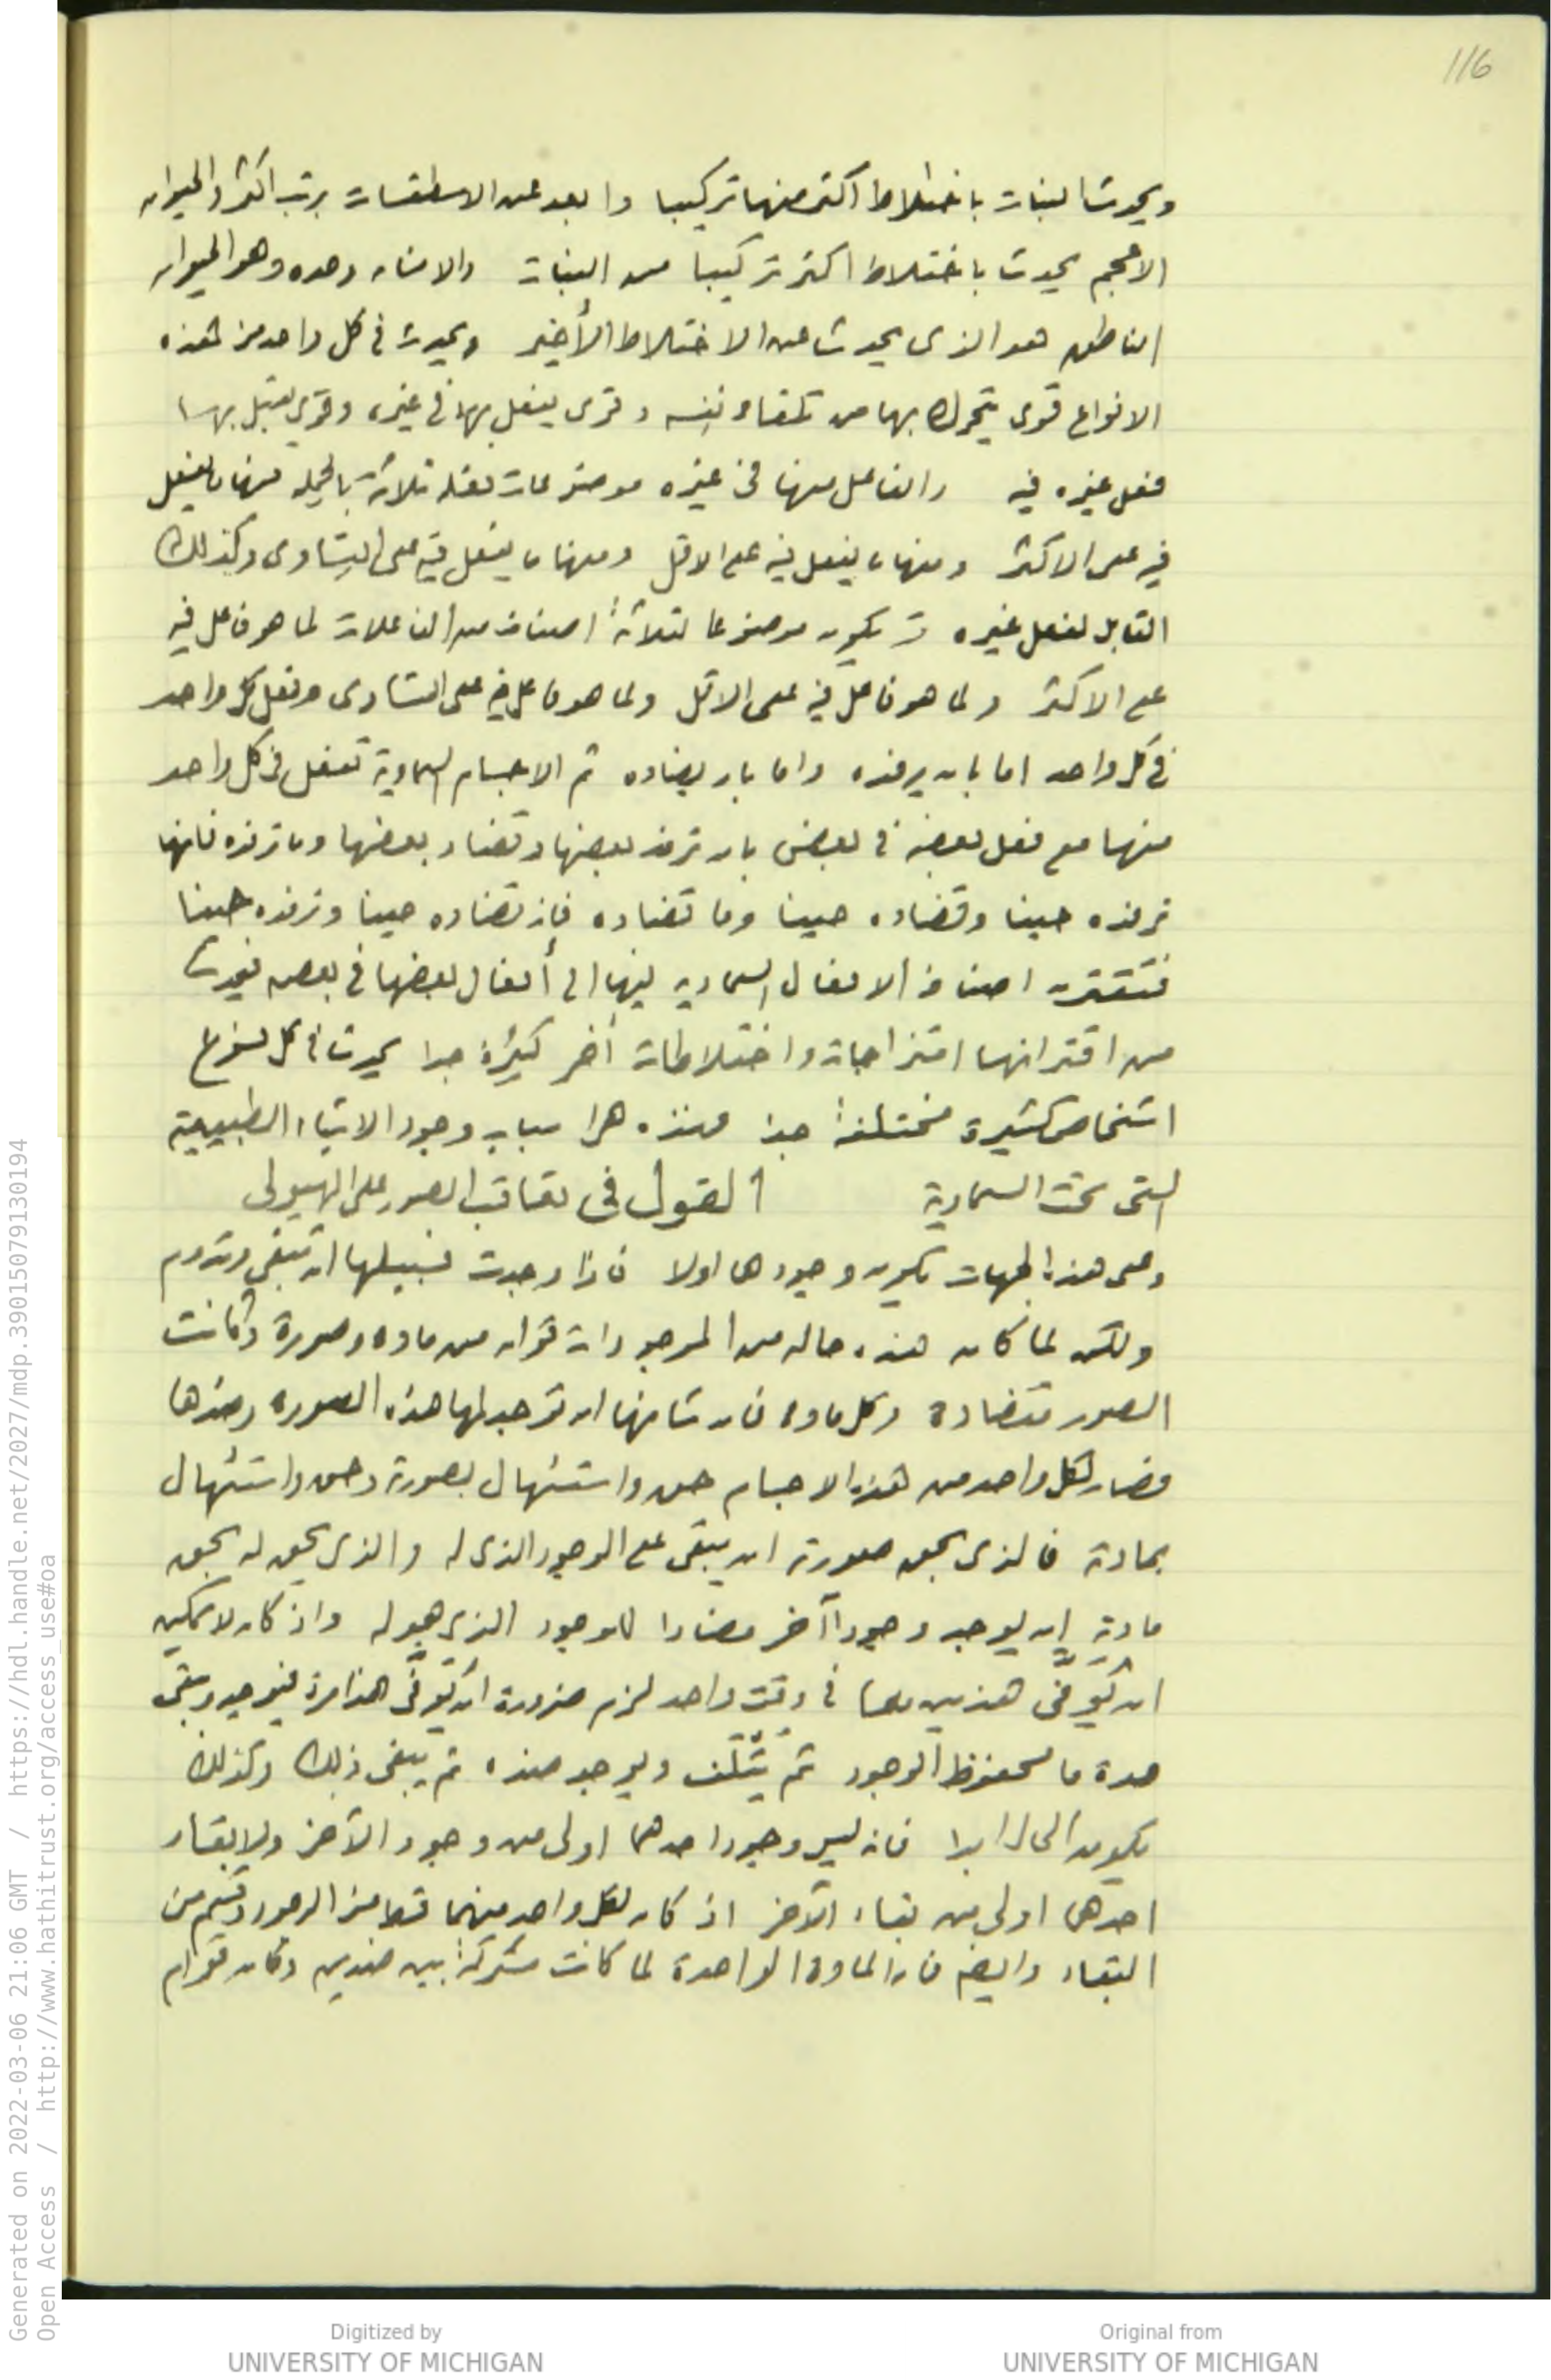 116
ويحدث النبات باختلاط اكثر منها تركيبا وابعد عن الاسطقسات برتب اكثر والحيوان
الاعجم يحدث باختلاط اكثر تركيبا من النبات والانسان وحده وهو الحيوان
الناطق هو الذى يحدث عن الاختلاط الأخير ويحدث فى كل واحد من هذه
الانواع قوى يتحرك بها من تلقاء نفسه وقوى يفعل بها فى غيره وقوى يقبل بها
فعل غيره فيه والفاعل منها فى غيره موضوعات فعله ثلاثة بالجملة منها ما يفعل
فيه على الاكثر ومنها ما يفعل فيه على الاقل ومنها ما يفعل فيه على التساوى وكذلك
القابل لفعل غيره قد يكون موضوعا لثلاثة اصناف من الفاعلات لما هو فاعل فيه
على الاكثر ولما هو فاعل فيه على الاقل ولما هو فاعل فيه على التساوى وفعل كل واحد
فى كل واحد اما بان يرفده واما بان يضاده ثم الاجسام السماوية تفعل فى كل واحد
منها مع فعل بعضه فى بعض بان ترفد بعضها وتضاد بعضها وما ترفده فانها
ترفده حينا وتضاده حينا وما تضاده فانه تضاده حينا وترفده حينا
فتقترن اصناف الافعال السماويه فيها الى أفعال بعضها فى بعض فيحدث
من اقترانها امتزاجات واختلاطات أخر كثيرة جدا يحدث فى كل نوع
اشخاص كثيرة مختلفة جدا فهذه هى اسباب وجود الاشياء الطبيعية
التى تحت السماوية القول فى تعاقب الصور على الهيولى
وعلى هذه الجهات يكون وجودها اولا فاذا وجدت فسبيلها ان تبقى وتدوم
ولكن لما كان هذه حاله من الموجودات قوامه من مادة وصورة وكانت
الصور متضادة وكل مادة فان شأنها ان توجد لها هذه الصورة وضدها
فصار لكل واحد من هذه الاجسام حق واستئهال بصورته وحق واستئهال
بمادته فالذى بحق صورته ان يبقى على الوجود الذى له والذى يحق له بحق
مادته ان يوجد وجودا آخر مضادا للوجود الذى هو له واذ كان لا يمكن
ان يُوَفّى هذين معا فى وقت واحد لزم ضرورة ان يُوَفّى هذا مرة فيوجد ويبقى
مدة ما محفوظ الوجود ثم يتلف ويوجد ضده ثم يبقى ذلك وكذلك
يكون الحال ابدا فانه ليس وجود احدهما اولى من وجود الآخر ولا بقاء
احدهما اولى من بقاء الآخر اذ كان لكل واحد منهما قسم من الوجود وقسم من
البقاء وايضا فان المادة الواحدة لما كانت مشتركة بين ضدين وكان قوام
Generated on 2022-03-06 21:06 GMT / https://hdl.handle.net/2027/mdp.39015079130194
Open Access / http://www.hathitrust.org/access_use#oa
Digitized by
UNIVERSITY OF MICHIGAN
Original from
UNIVERSITY OF MICHIGAN